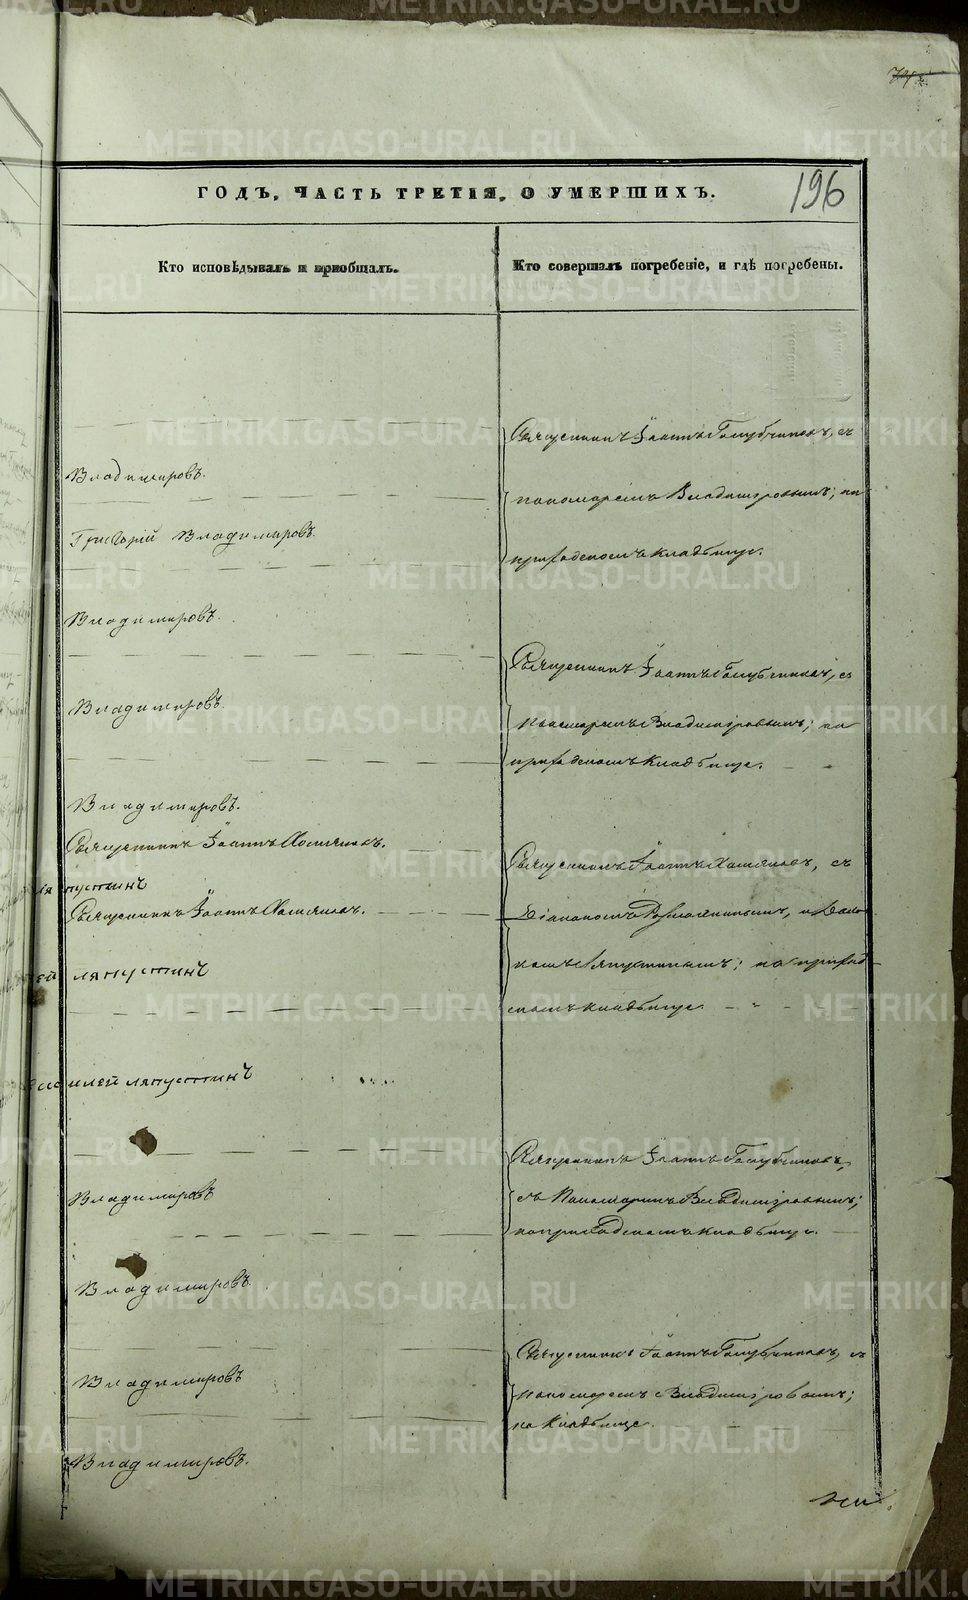 196
ГОДЪ, ЧАСТЬ ТРЕТІЯ, О УМЕРШИХЪ.
Кто исповѣдывалъ и пріобщалъ.
Кто совершалъ погребеніе, и гдѣ погребены.
Священникъ Іоаннъ Голубчиковъ, съ
Владимировъ.
пономаремъ Владимировымъ; на
Григорій Владимировъ.
приходскомъ кладбище.
Владимировъ.
Священникъ Іоаннъ Голубчиковъ, съ
Владимировъ.
пономаремъ Владимировымъ; на
приходскомъ кладбище.
Владимировъ.
Священникъ Іоаннъ Хомяковъ.
Священникъ Іоаннъ Хомяковъ, съ
пустинъ
Священникъ Іоаннъ Хомяковъ.
Діакономъ
Ляпустинъ
Ляпустинымъ; на приход
скомъ кладбище.
илей Ляпустинъ
Священникъ Іоаннъ Голубчиковъ,
Владимировъ
съ Пономаремъ Владимировымъ;
на приходскомъ кладбище.
Владимировъ.
Священникъ Іоаннъ Голубчиковъ, съ
Владимировъ
пономаремъ Владимировымъ;
на кладбище.
Владимировъ.
METRIKI.GASO-URAL.RU